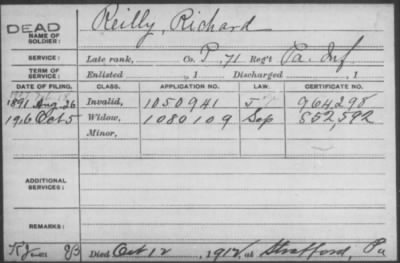 DEAD
Reilly, Richard
NAME OF SOLDIER:
SERVICE: Late rank, Co. P, 71 Reg't Pa. Inf
TERM OF SERVICE: Enlisted , 1 Discharged , 1
DATE OF FILING. CLASS. APPLICATION NO. LAW. CERTIFICATE NO.
1891 Aug. 26 Invalid, 1050941 964298
1916 Oct 5 Widow, 1080109 Sep 852,592
Minor,
ADDITIONAL SERVICES:
REMARKS:
Died Oct 12, 1912, at Strafford, Pa